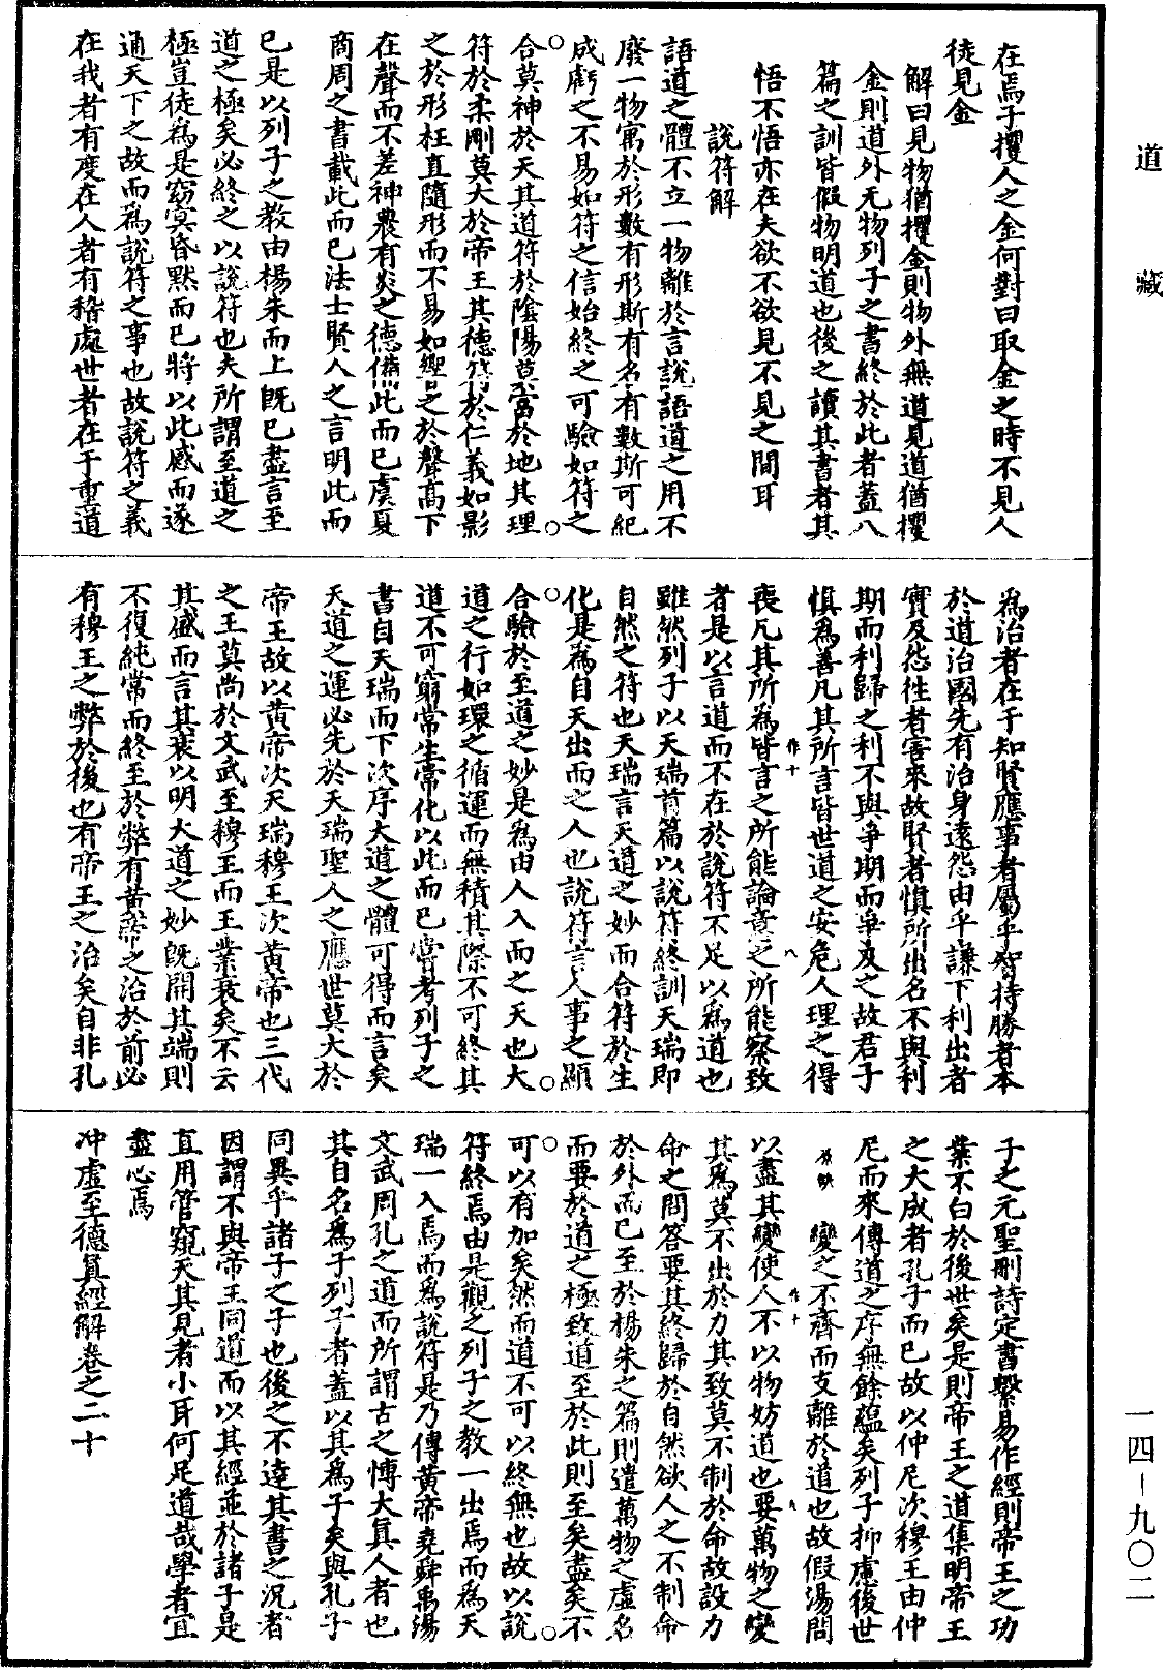 道藏
在焉子攫人之金何對曰取金之時不見人
徒見金
解曰見物猶攫金則物外無道見道猶攫
金則道外无物列子之書終於此者蓋八
篇之訓皆假物明道也後之讀其書者其
悟不悟亦在夫欲不欲見不見之間耳
說符解
語道之體不立一物離於言說語道之用不
廢一物寓於形數有形斯有名有數斯可紀
成虧之不易如符之信始終之可驗如符之
合莫神於天其道符於陰陽莫富於地其理
符於柔剛莫大於帝王其德符於仁義如影
之於形枉直隨形而不易如響之於聲高下
在聲而不差神農有炎之德備此而已虞夏
商周之書載此而已法士賢人之言明此而
已是以列子之教由楊朱而上既已盡言至
道之極矣必終之以說符也夫所謂至道之
極豈徒為是窈冥昏默而已將以此感而遂
通天下之故而為說符之事也故說符之義
在我者有度在人者有稽處世者在于重道
為治者在于知賢應事者屬乎智持勝者本
於道治國先有治身遠怨由乎謙下利出者
實及怨往者害來故賢者慎所出名不與利
期而利歸之利不與爭期而爭及之故君子
慎為善凡其所言皆世道之安危人理之得
喪凡其所為皆言之所能論意之所能察致
者是以言道而不在於說符不足以為道也
雖然列子以天瑞首篇以說符終訓天瑞即
自然之符也天瑞言天道之妙而合符於生
化是為自天出而之人也說符言人事之顯
合驗於至道之妙是為由人入而之天也大
道之行如環之循運而無積其際不可終其
道不可窮常生常化以此而已嘗考列子之
書自天瑞而下次序大道之體可得而言矣
天道之運必先於天瑞聖人之應世莫大於
帝王故以黃帝次天瑞穆王次黃帝也三代
之王莫尚於文武至穆王而王業衰矣不云
其盛而言其衰以明大道之妙既開其端則
不復純常而終至於弊有黃帝之治於前必
有穆王之弊於後也有帝王之治矣自非孔
子之元聖刪詩定書繫易作經則帝王之功
業不白於後世矣是則帝王之道集明帝王
之大成者孔子而已故以仲尼次穆王由仲
尼而來傳道之序無餘蘊矣列子抑慮後世
原缺 變之不齊而支離於道也故假湯問
以盡其變使人不以物妨道也要萬物之變
其為莫不出於力其致莫不制於命故設力
命之問答要其終歸於自然欲人之不制命
於外而已至於楊朱之篇則遣萬物之虛名
而要於道之極致道至於此則至矣盡矣不
可以有加矣然而道不可以終無也故以說
符終焉由是觀之列子之教一出焉而為天
瑞一入焉而為說符是乃傳黃帝堯舜禹湯
文武周孔之道而所謂古之博大真人者也
其自名為子列子者蓋以其為子矣與孔子
同異乎諸子之子也後之不達其書之況者
因謂不與帝王同道而以其經並於諸子是
直用管窺天其見者小耳何足道哉學者宜
盡心焉
冲虛至德真經解卷之二十
一四－九〇二